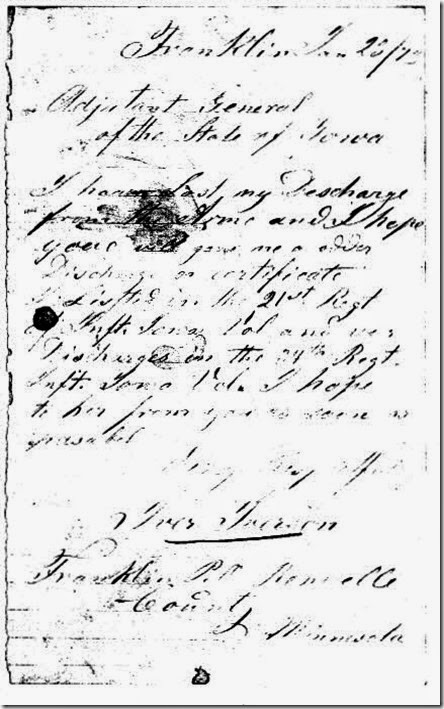 Franklin Jan 23/7
Adjutant General
of the State of Iowa
I haven Lost my Descharge
from the Arme and I hope
youe will gave me a odder
Discharge or certificate
I Listted in the 21st Regt
of Inft. Iowa Vol and ver
Discharges in the 34th Regt.
Inft. Iowa Vol. I hope
to her from you as soon as
posabel
Very
Iver Iverson
Franklin P.O. Renville
County
Minnesota